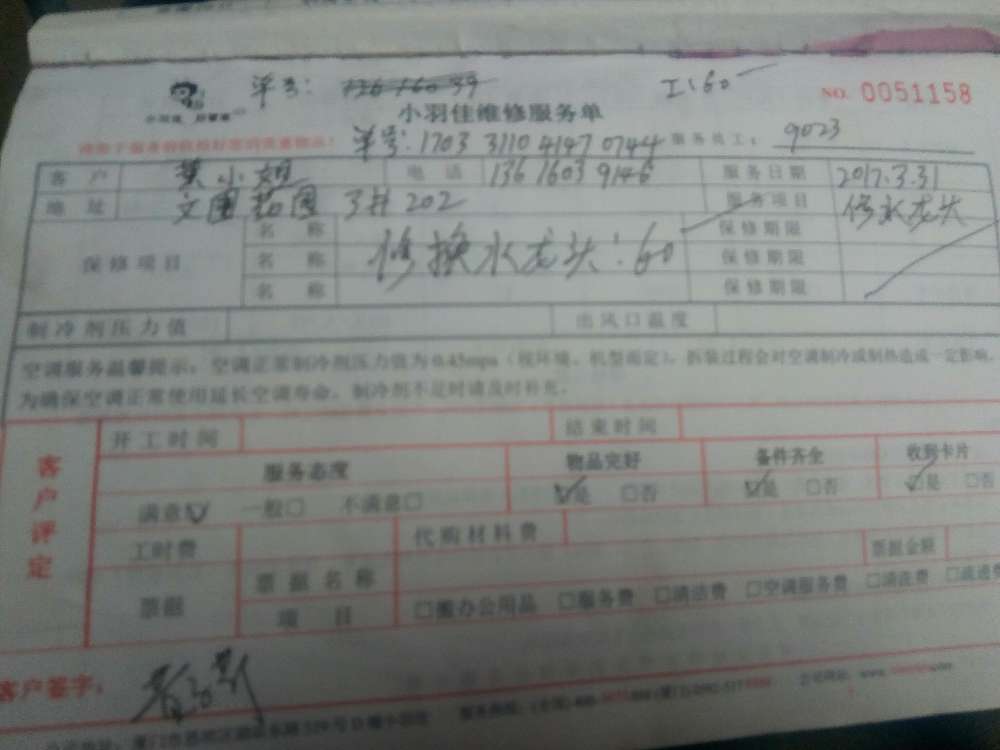 单号:
工:60
NO. 0051158
小羽佳维修服务单
单号:1703 3110 4147 0744 服务员工: 9023
客户 黄小姐 电话 13616039146 服务日期 2017.3.31
地址 文园 202 服务项目 修水龙头
保修项目 名称 修换水龙头:60 保修期限
名称 保修期限
名称 保修期限
制冷剂压力值 出风口温度
空调服务温馨提示:空调正常制冷剂压力值为0.45mpa(视环境、机型而定),拆装过程会对空调制冷或制热造成一定影响,
为确保空调正常使用延长空调寿命,制冷剂不足时请及时补充。
客户评定
开工时间 结束时间
服务态度 物品完好 备件齐全 收到卡片
满意☑ 一般□ 不满意□ ☑是 □否 ☑是 □否 ☑是 □否
工时费 代购材料费
票据 票据名称 票据金额
项目 □搬办公用品 □服务费 □清洁费 □空调服务费 □清洗费
客户签字: